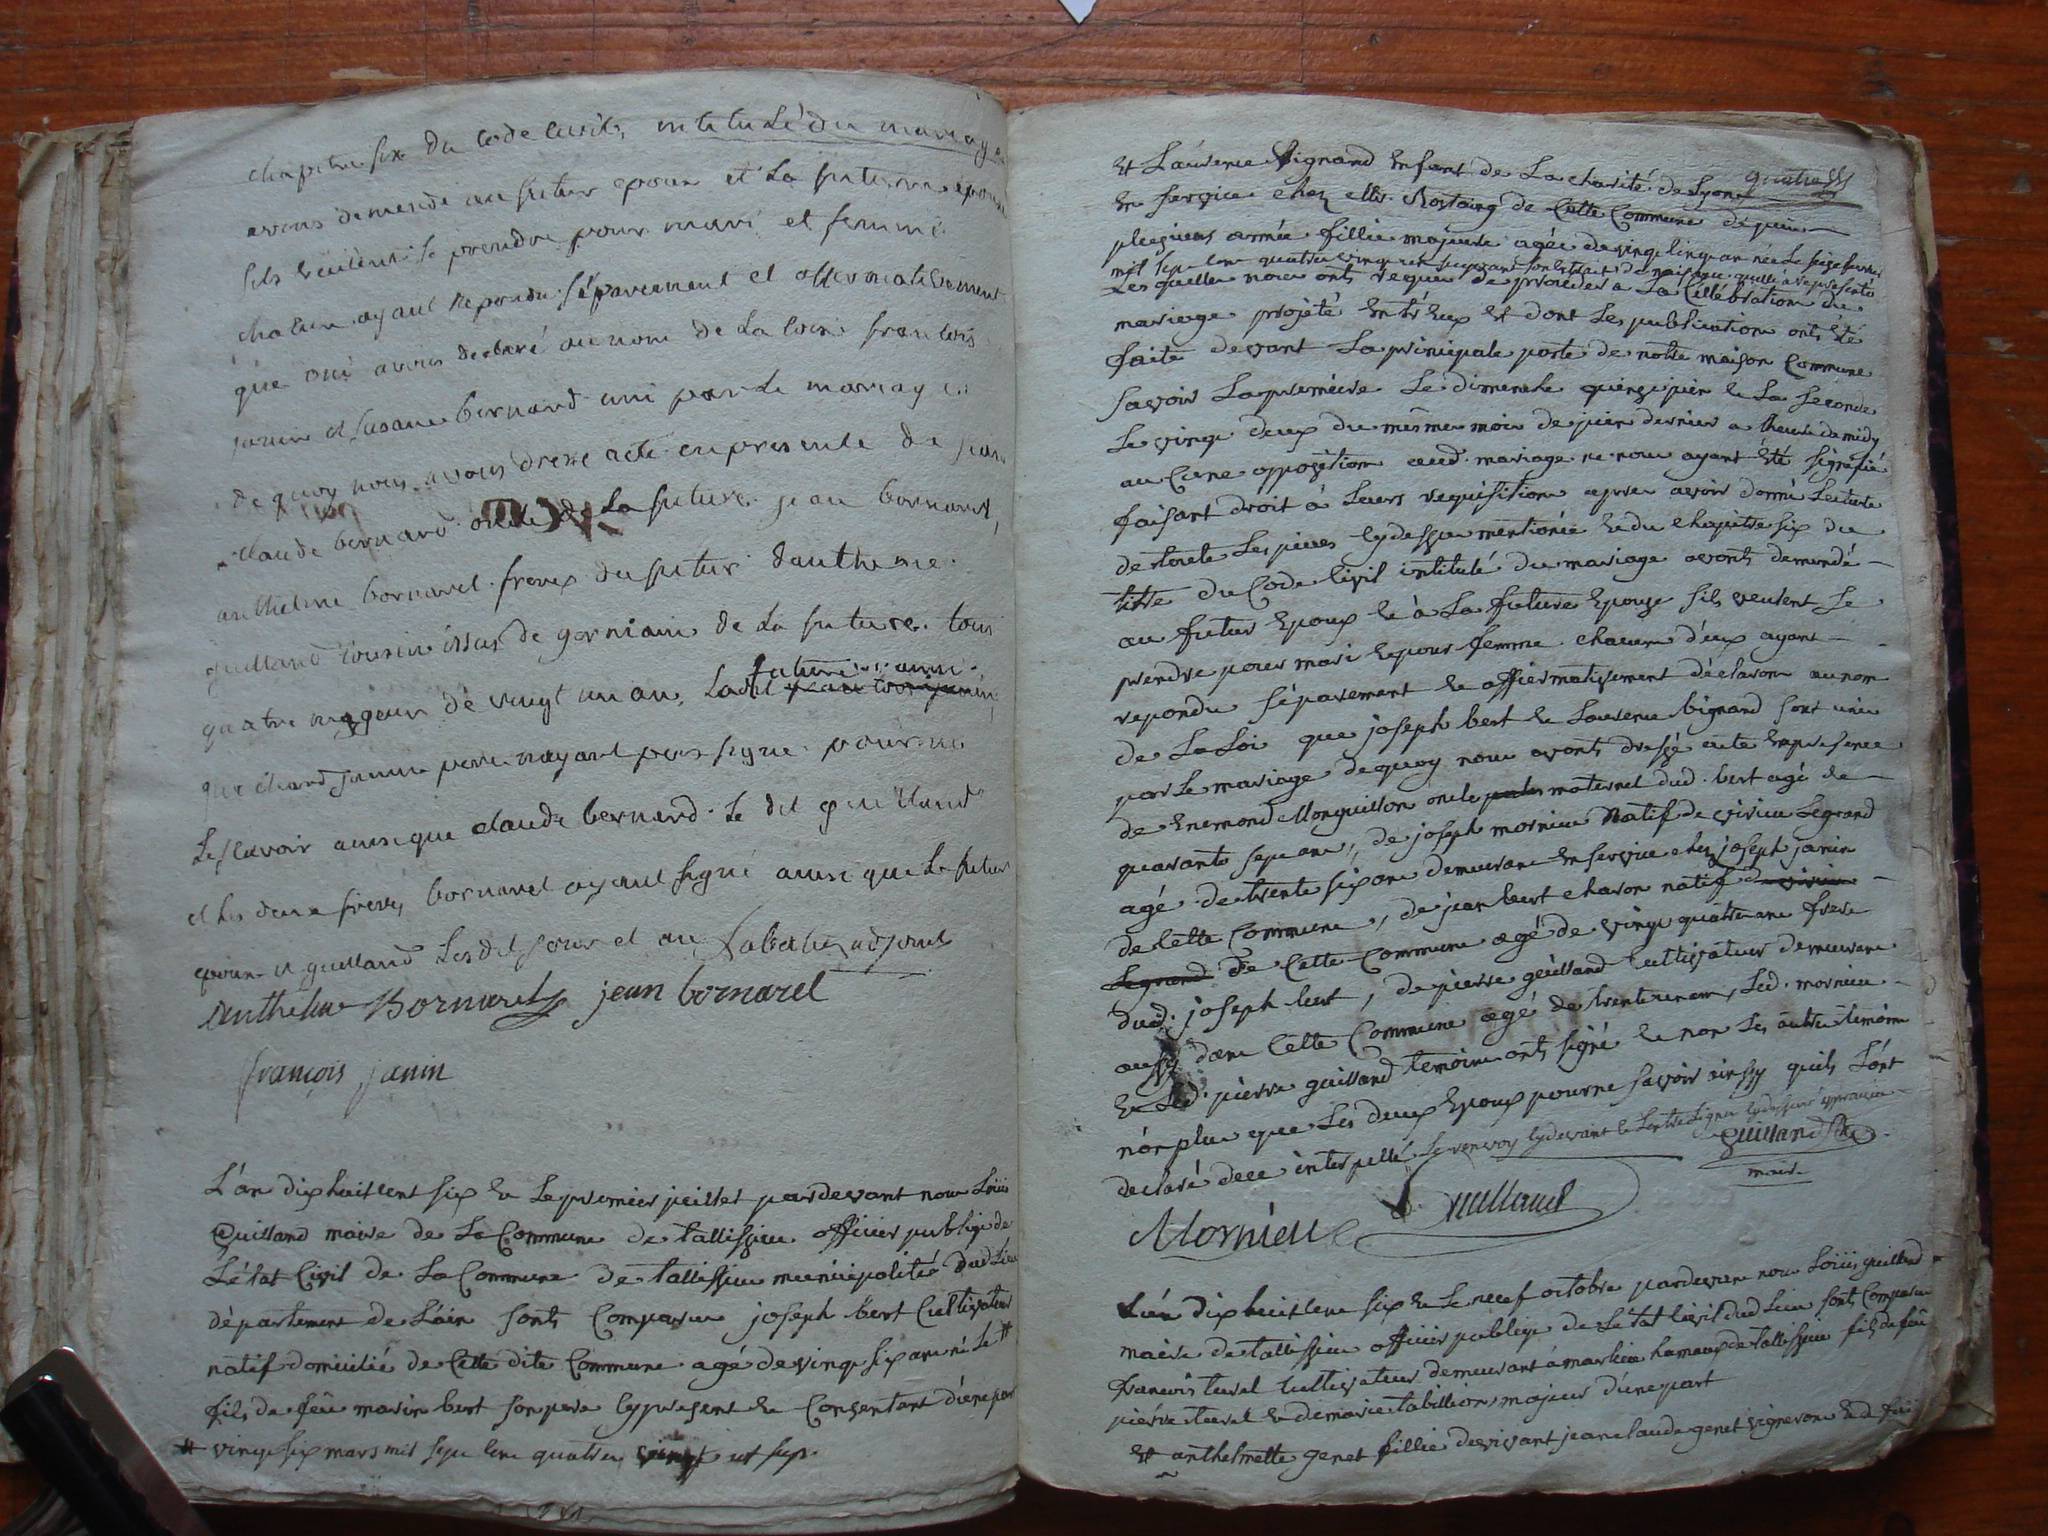 chapitre six du code civil, intitulé du mariage
avons demendé au futur epoux et La future epouse
sils veulent se prendre pour mari et femme
chalun ayant repondu séparement et affermativement
que oui avons declaré au nom de La loix francois
janin et susane bernard uni par le mariage
de quoy nous avons dressé acte en presente de jean
claude bernard oncle de La future jean bornarel,
anthelme bornarel freres du futur danthelme
guilland cousin issus de germain de La future tous
quatre majeur de vingt un an, Ladit future
janin pere nayant pas signé pour ne
Le scavoir ainsi que claude bernard Le dit guilland
et les deux freres bornarel ayant signé ainsi que Le futur
epoux et guilland Lesdit jour et an adjoint
anthelme Bornarel jean bornarel
françois janin
L'an dixhuitcent six & Le premier juillet pardevant nous Loüis
Guilland maire de La Commune de tallissieu officier publiq de
L'état Civil de La Commune de tallissieu municipalité dud Lieu
département de L'ain sont Comparu joseph bert Cultivateur
natif domicilié de Cette dite Commune agé de vingt six ans né le #
fils de feu marin bert son pere cy present & Consentant d'une part
# vingt six mars mil sept cent quatre vingt
quatre
Et Laurence Bignand Enfant de La charité de Lyon
En service chez Rostaing de Cette Commune depuis
plusieurs année fillie majeure agée de vingt cinq an née Le seize fevrier
mil sept cent quatre vingt un suivant son Extrait de naissance quelle a representé
Lesquelles nous ont requis de proceder a La Céllébration du
mariage projeté Entr'Eux et dont Les publication ont été
faite devant La principale porte de notre maison Commune
savoir La premiere Le dimanche quinze juin & La seconde
Le vingt deux du même mois de juin dernier a lheure de midy
aucune opposition aud. mariage ne nous ayant été signifié
faisant droit à Leurs requisition apres avoir donné Lecture
de toute Les pieces cydessus mentionée & du chapitre six du
titre du Code Civil intitulé du mariage avons demandé
au futur Epoux & à La future Epouze sils veulent se
prendre pour mari & pour femme chacun d'eux ayant
repondu séparement & affirmativement déclarons au nom
de La Loi que joseph bert & Laurence bignand sont unis
par Le mariage de quoy nous avons dressé acte En presence
de Enemond Monguillon oncle maternel dud. bert agé de
quarante sept ans, de joseph mornieu Natif de virieu Legrand
agé de trente six ans demeurant En service chez joseph janin
de Cette Commune, de jean bert charon natif de virieu
Legrand de Cette Commune agé de vingt quatre ans frere
dud. joseph bert, de pierre guilland Cultivateur demeurant
aussy dans Cette Commune agé de trente un an, Led. mornieu
& Led. pierre guilland temoins ont signé & non Les autre témoins
non plus que Les deux Epoux pour ne savoir ainssy quils L'ont
declaré de ce interpellé Le renvoy cy devant & Lentre Ligne cy dessus
Guilland
maire
Mornieu P. Guilland
L'an dixhuitcent six & Le neuf octobre pardevant nous Loüis guilland
maire de tallissieu officier publiq de L'état Civil dud Lieu sont Comparu
francois tural Cultivateur demeurant à marlieu hameau de tallissieu fils de feu
pierre tural & de marie tabillion majeur d'une part
Et anthelmette genet fillie de vivant jean claude genet vigneron